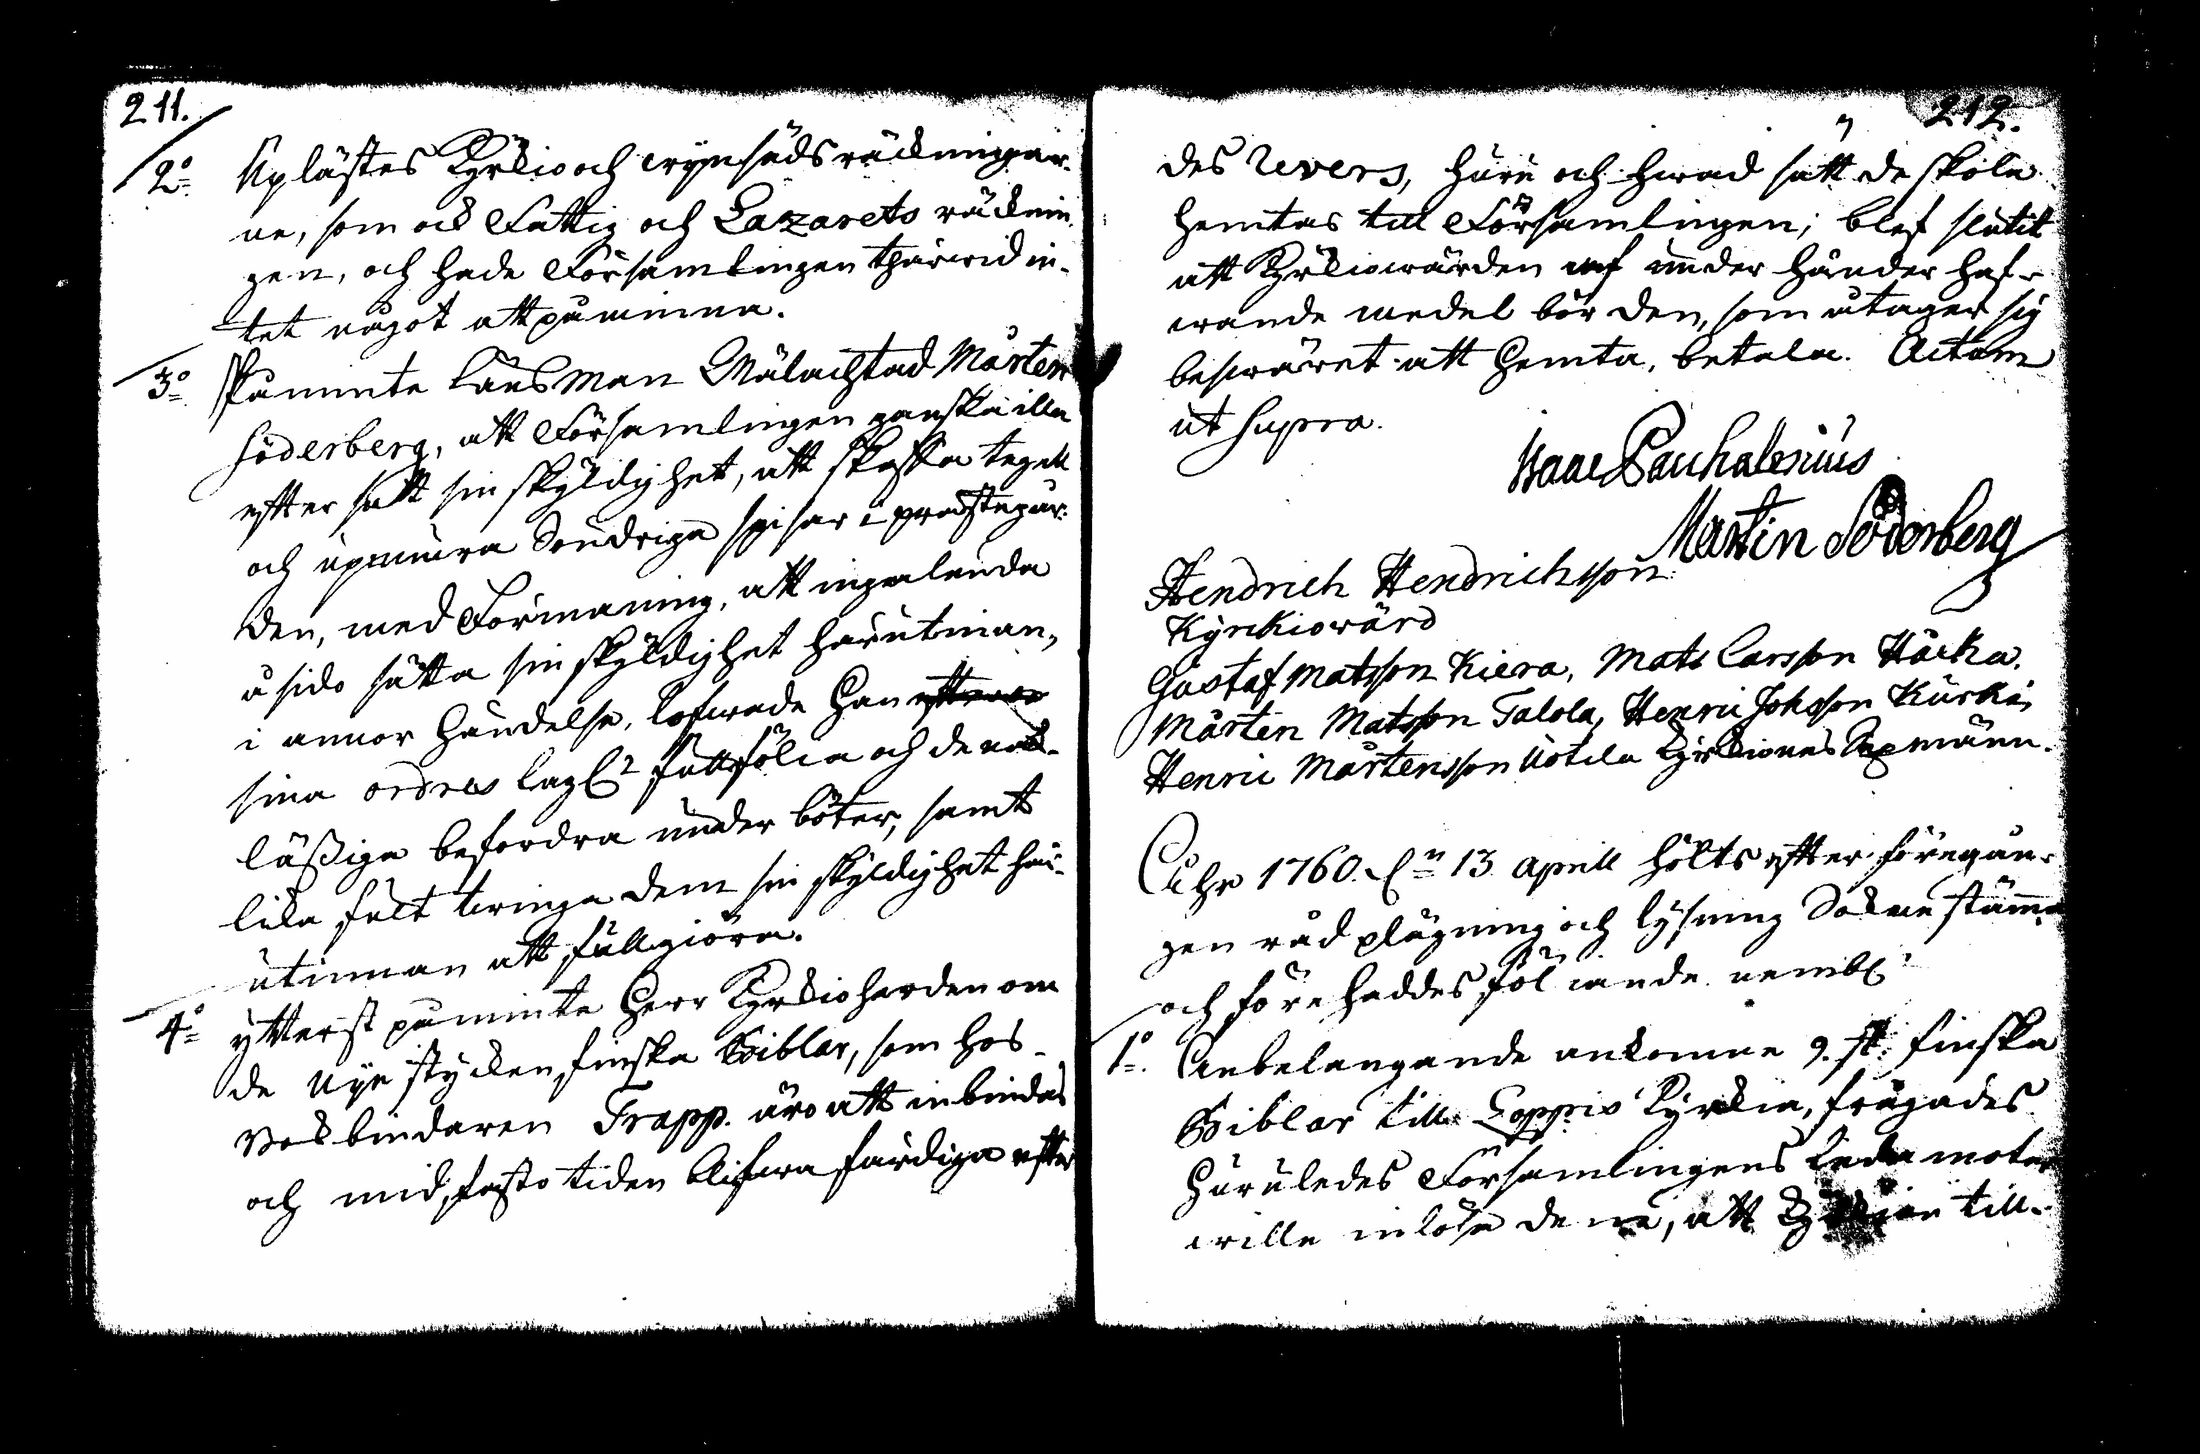 211.
2:o Uplästes Kyrkio och crymsäds räckningar-
ne, som ock Fattig och Lazarets räcknin
gen, och hade Församlingen thärwid in-
tet något att påminna.
3:o Påminte Länsman Wälachtad Mårten
Söderberg, att Församlingen ganska illa
effter satt sin skyldighet, att skaffa tegell
och upmura Söndriga spisar i prästegår-
den, med Förmaning, att ingalunda
å sido sätta sin skyldighet härutinnan,
i annor händelse, lofwade han
sina ordres lagl: fullfölia och de no-
läßiga befordra under böter, samt
lika fult twinga dem sin skyldighet här-
utinnan att fullgiöra.
4:o ytterst påminte Herr Kyrkioherden om
de Nye stycken finska Biblar, som hos
Bokbindaren Trapp. äro att inbindas
och mid fasto tiden blifwa färdiga efter
212.
des Revers, huru och hwad sätt de skola
hemtas till Församlingen; blef slutit
att Kyrkiowärden af under händer haf-
wande medel bör den, som åtager sig
beswäret att hemta, betala. Actum
ut supra.
Isaac Pauchalenius
Martin Söderberg
Hendrich Hendrichsson
Kyrkiowärd
Gustaf Matsson Kiera, Mats Larsson Häcka.
Mårten Matsson Talola, Henric Johsson Kurki,
Henric Mårtensson Uotila Kyrkiones Sexmänn.
Åhr 1760. d: 13 aprill hölts effter föregån-
gen rådplägning och lysning Sokne stämma
och förehaddes föliande neml:
1:o Anbelangande ankomne 9. st: finska
Biblar till Loppis Kyrkia, frågades
huruledes Församlingens Ledamoter
wille inlösa denne, att Kyrkian till-